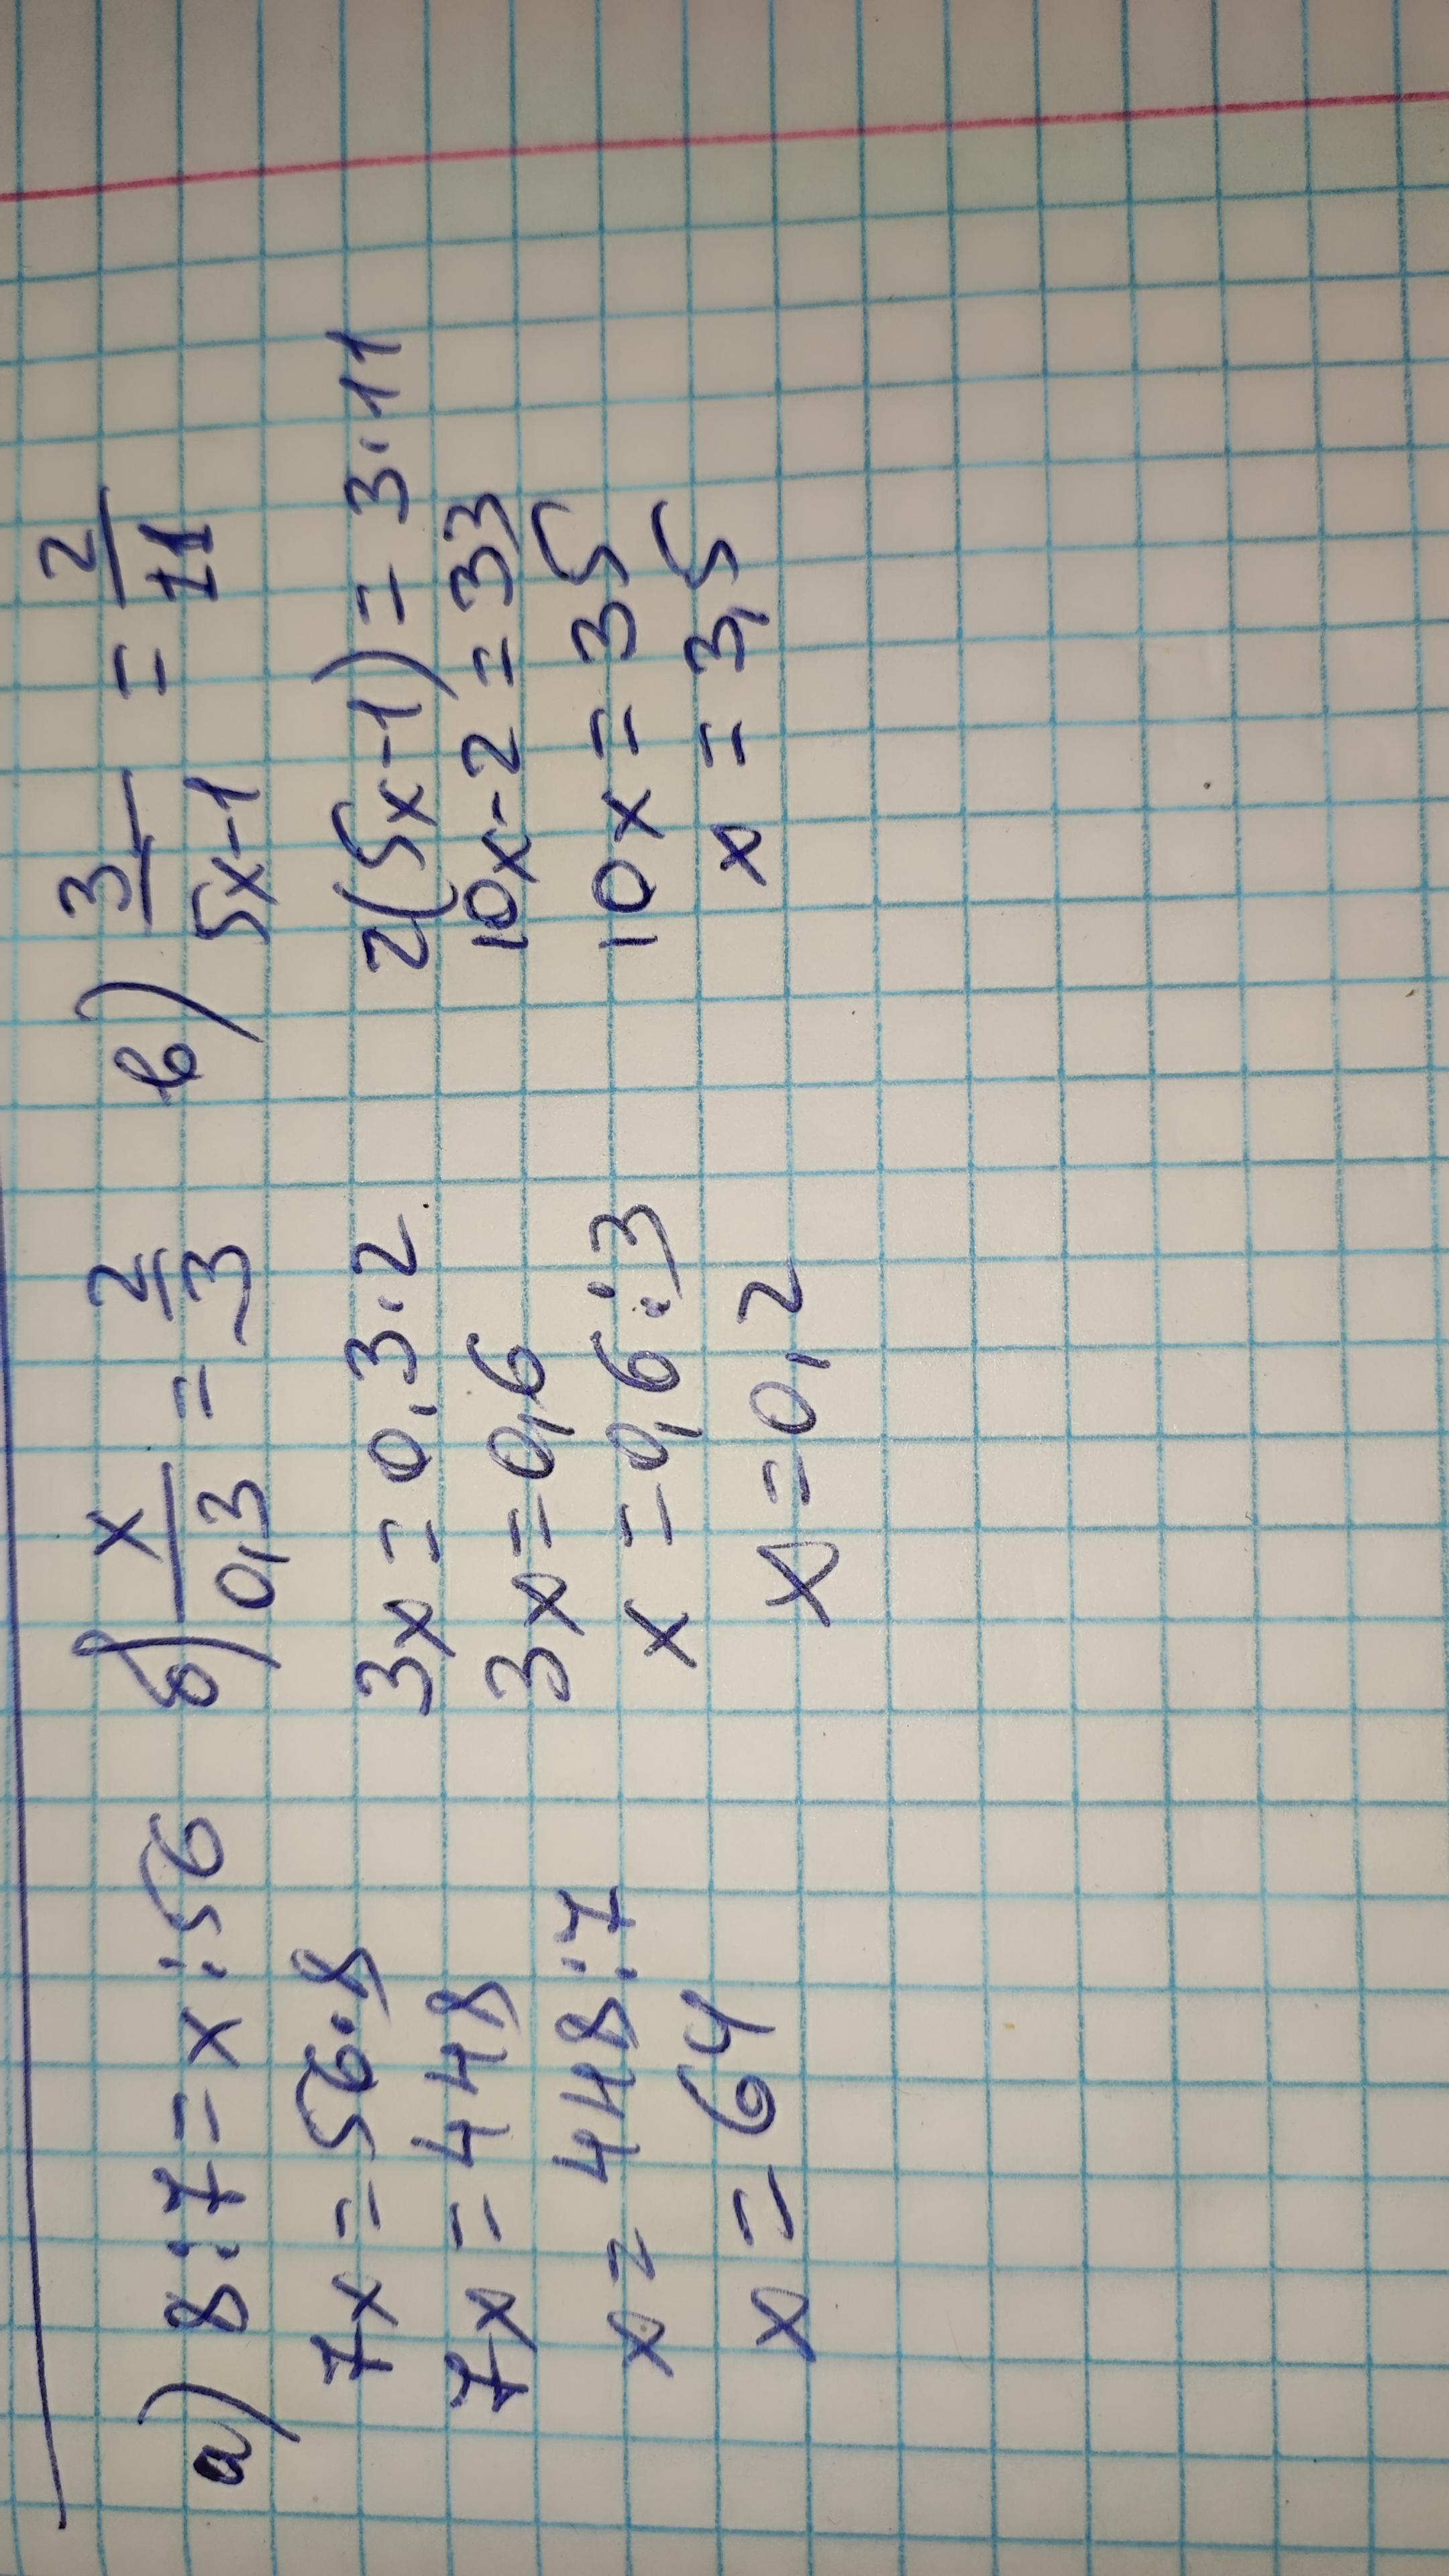 а) 8:7=x:56
7x=56·8
7x=448
x=448:7
x=64
б) x/0,3 = 2/3
3x=0,3·2
3x=0,6
x=0,6:3
x=0,2
в) 3/5x-1 = 2/11
2(5x-1)=3·11
10x-2=33
10x=35
x=3,5